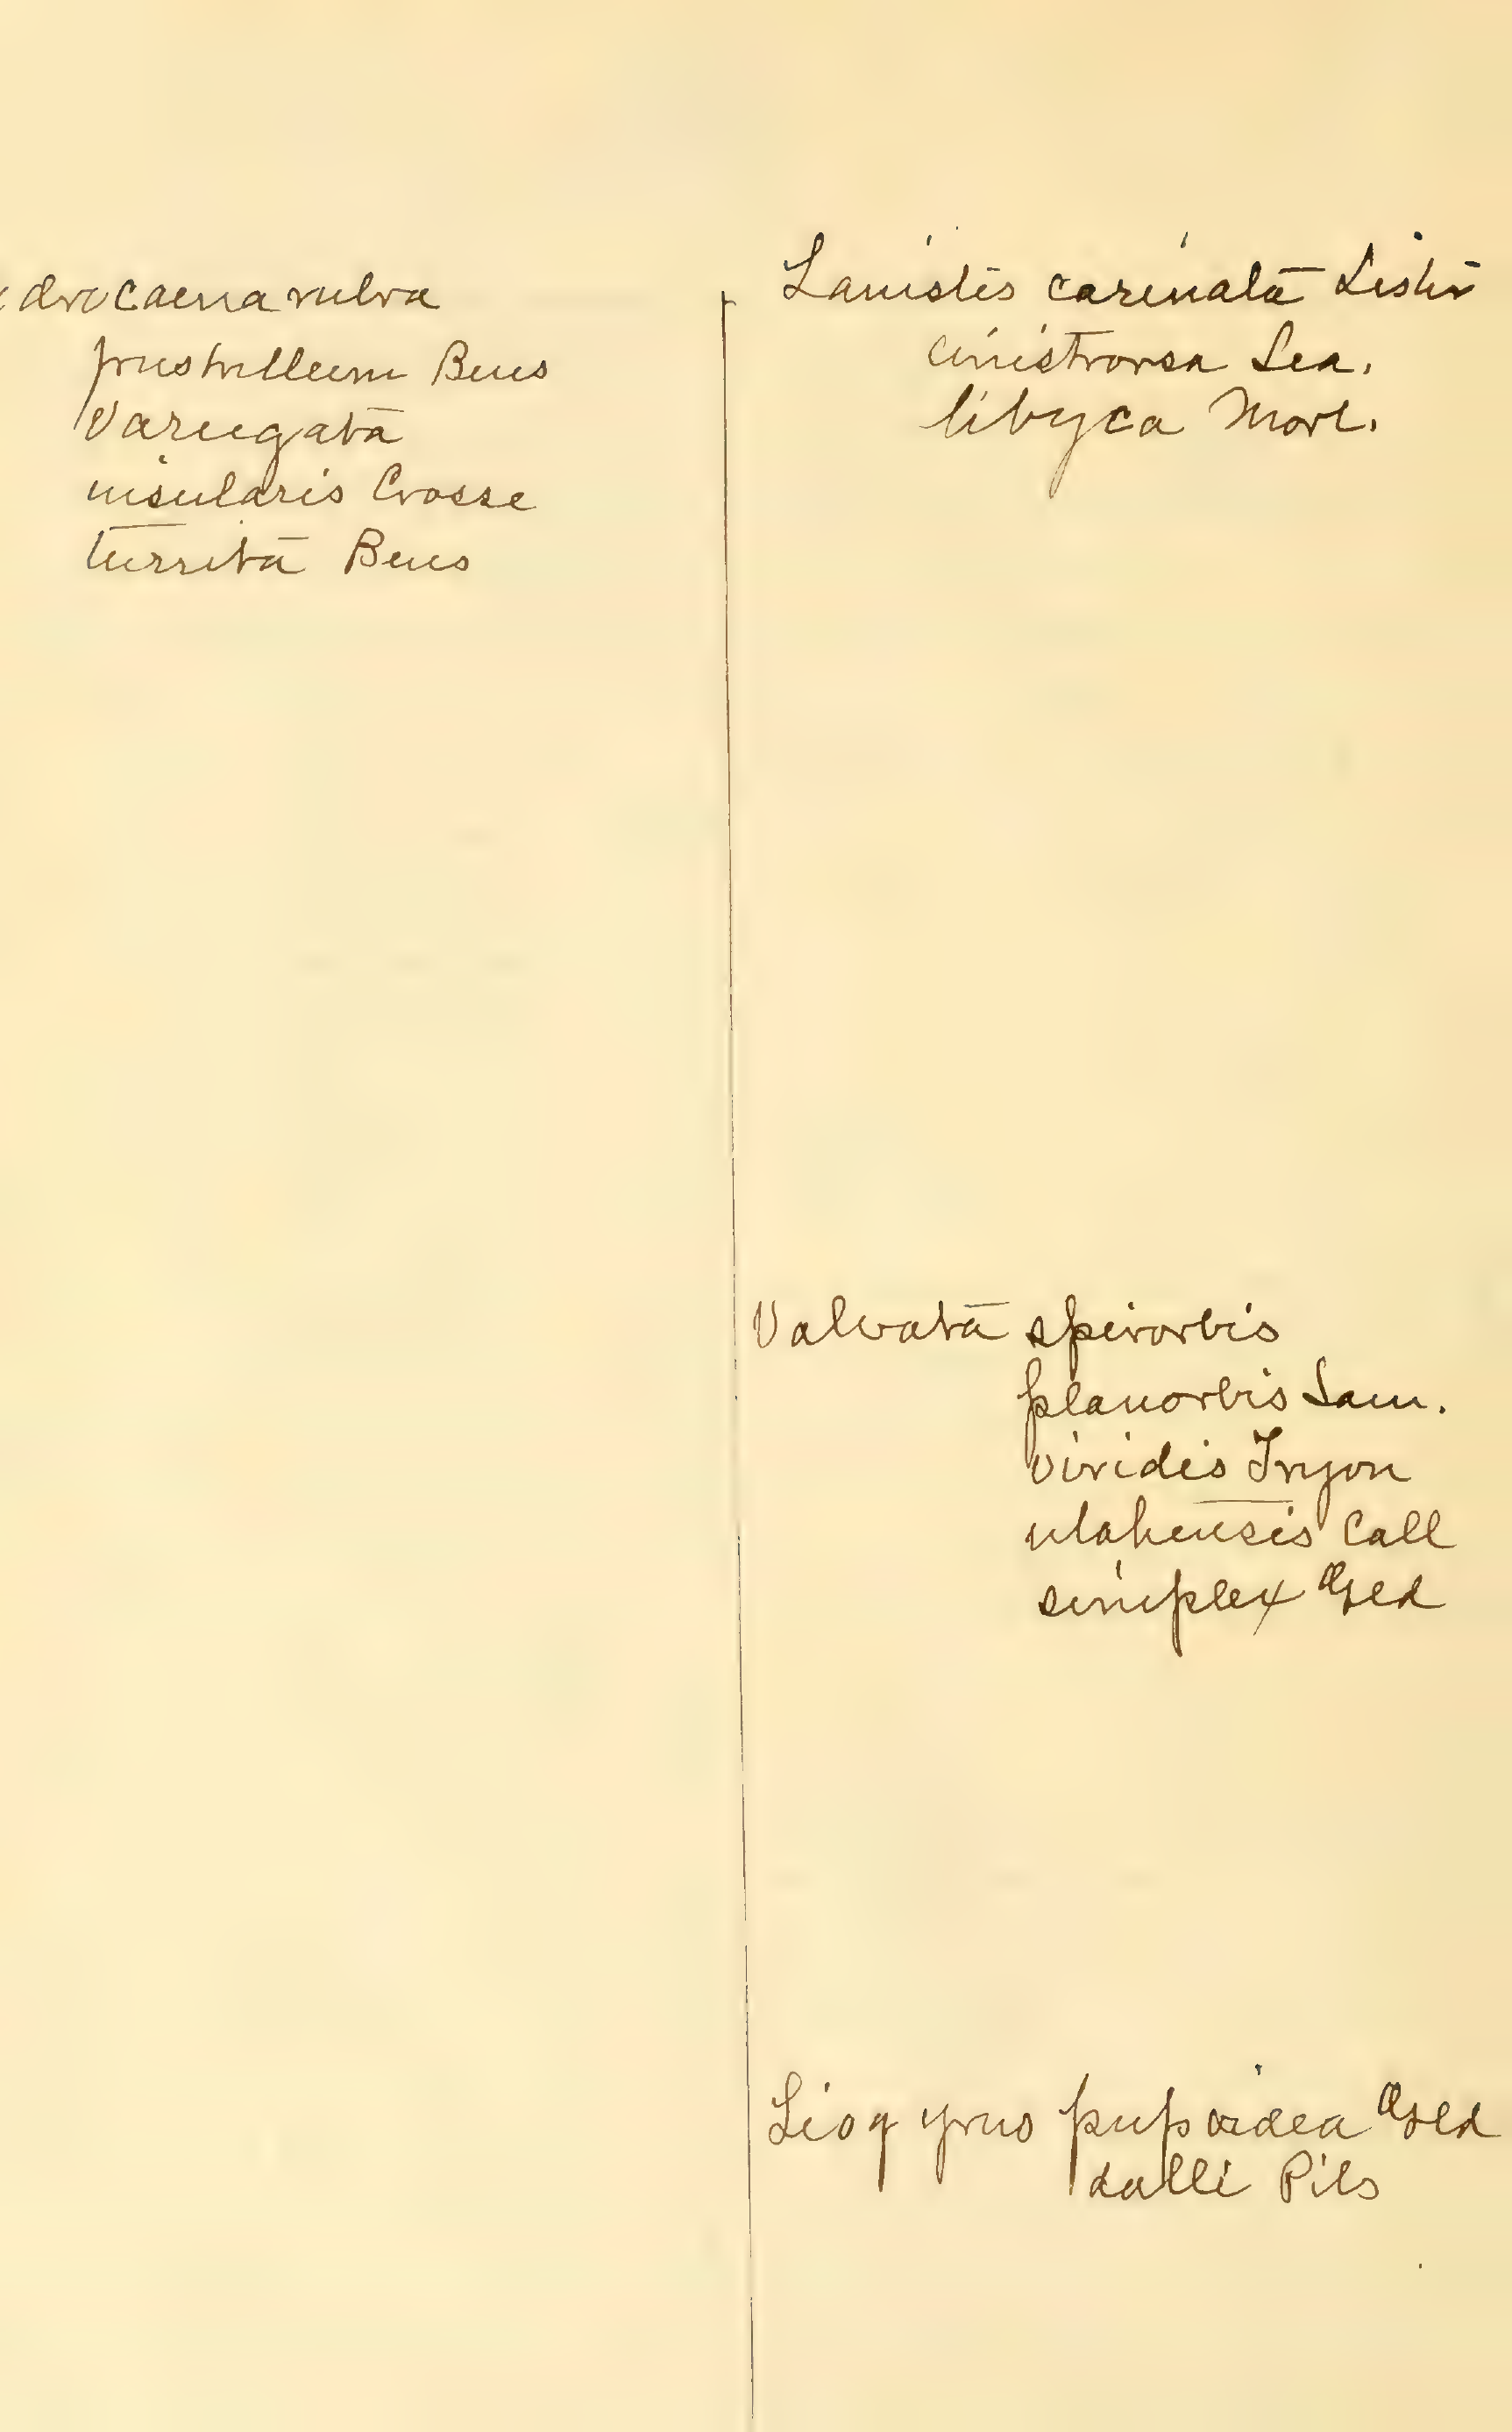 drocaena rubra
pustulleum Bens
Variegata
insularis Crosse
turrita Bens
Lanistes carinata Lister
sinistrorsa Lea.
libyca Morl.
Valvata spirorbis
planorbis Lam.
viridis Tryon
utahensis Call
simplex Gld
Liogyrus pupoidea Gld
dalli Pils